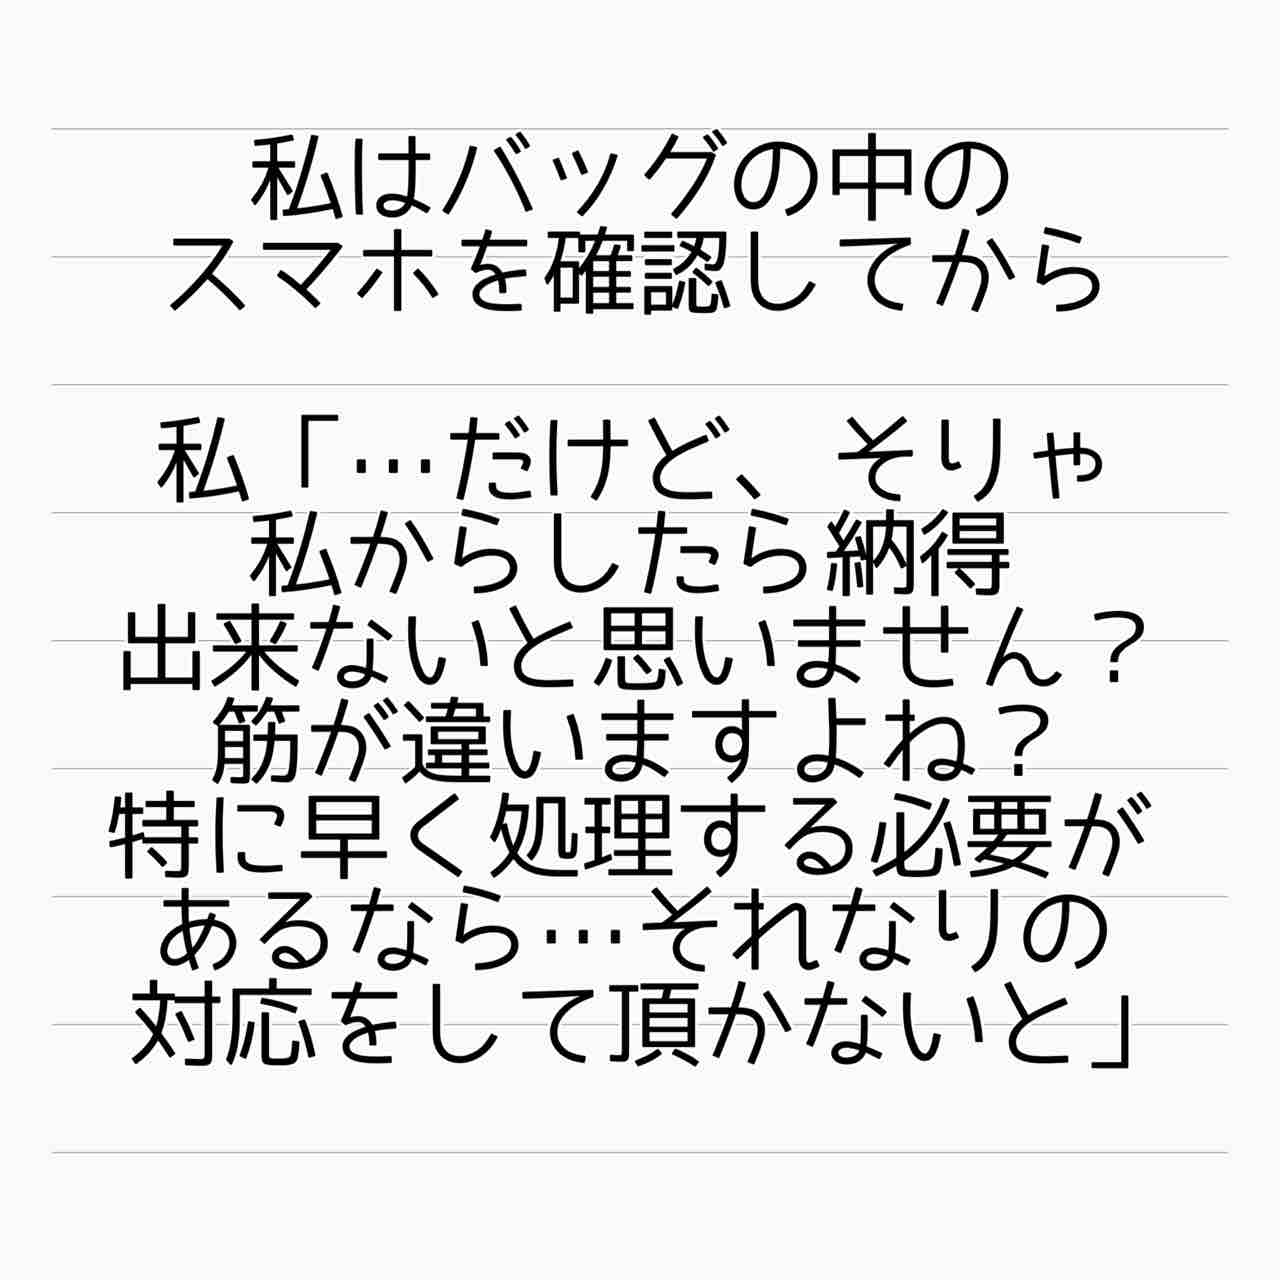 私はバッグの中の
スマホを確認してから
私「…だけど、そりゃ
私からしたら納得
出来ないと思いません？
筋が違いますよね？
特に早く処理する必要が
あるなら…それなりの
対応をして頂かないと」